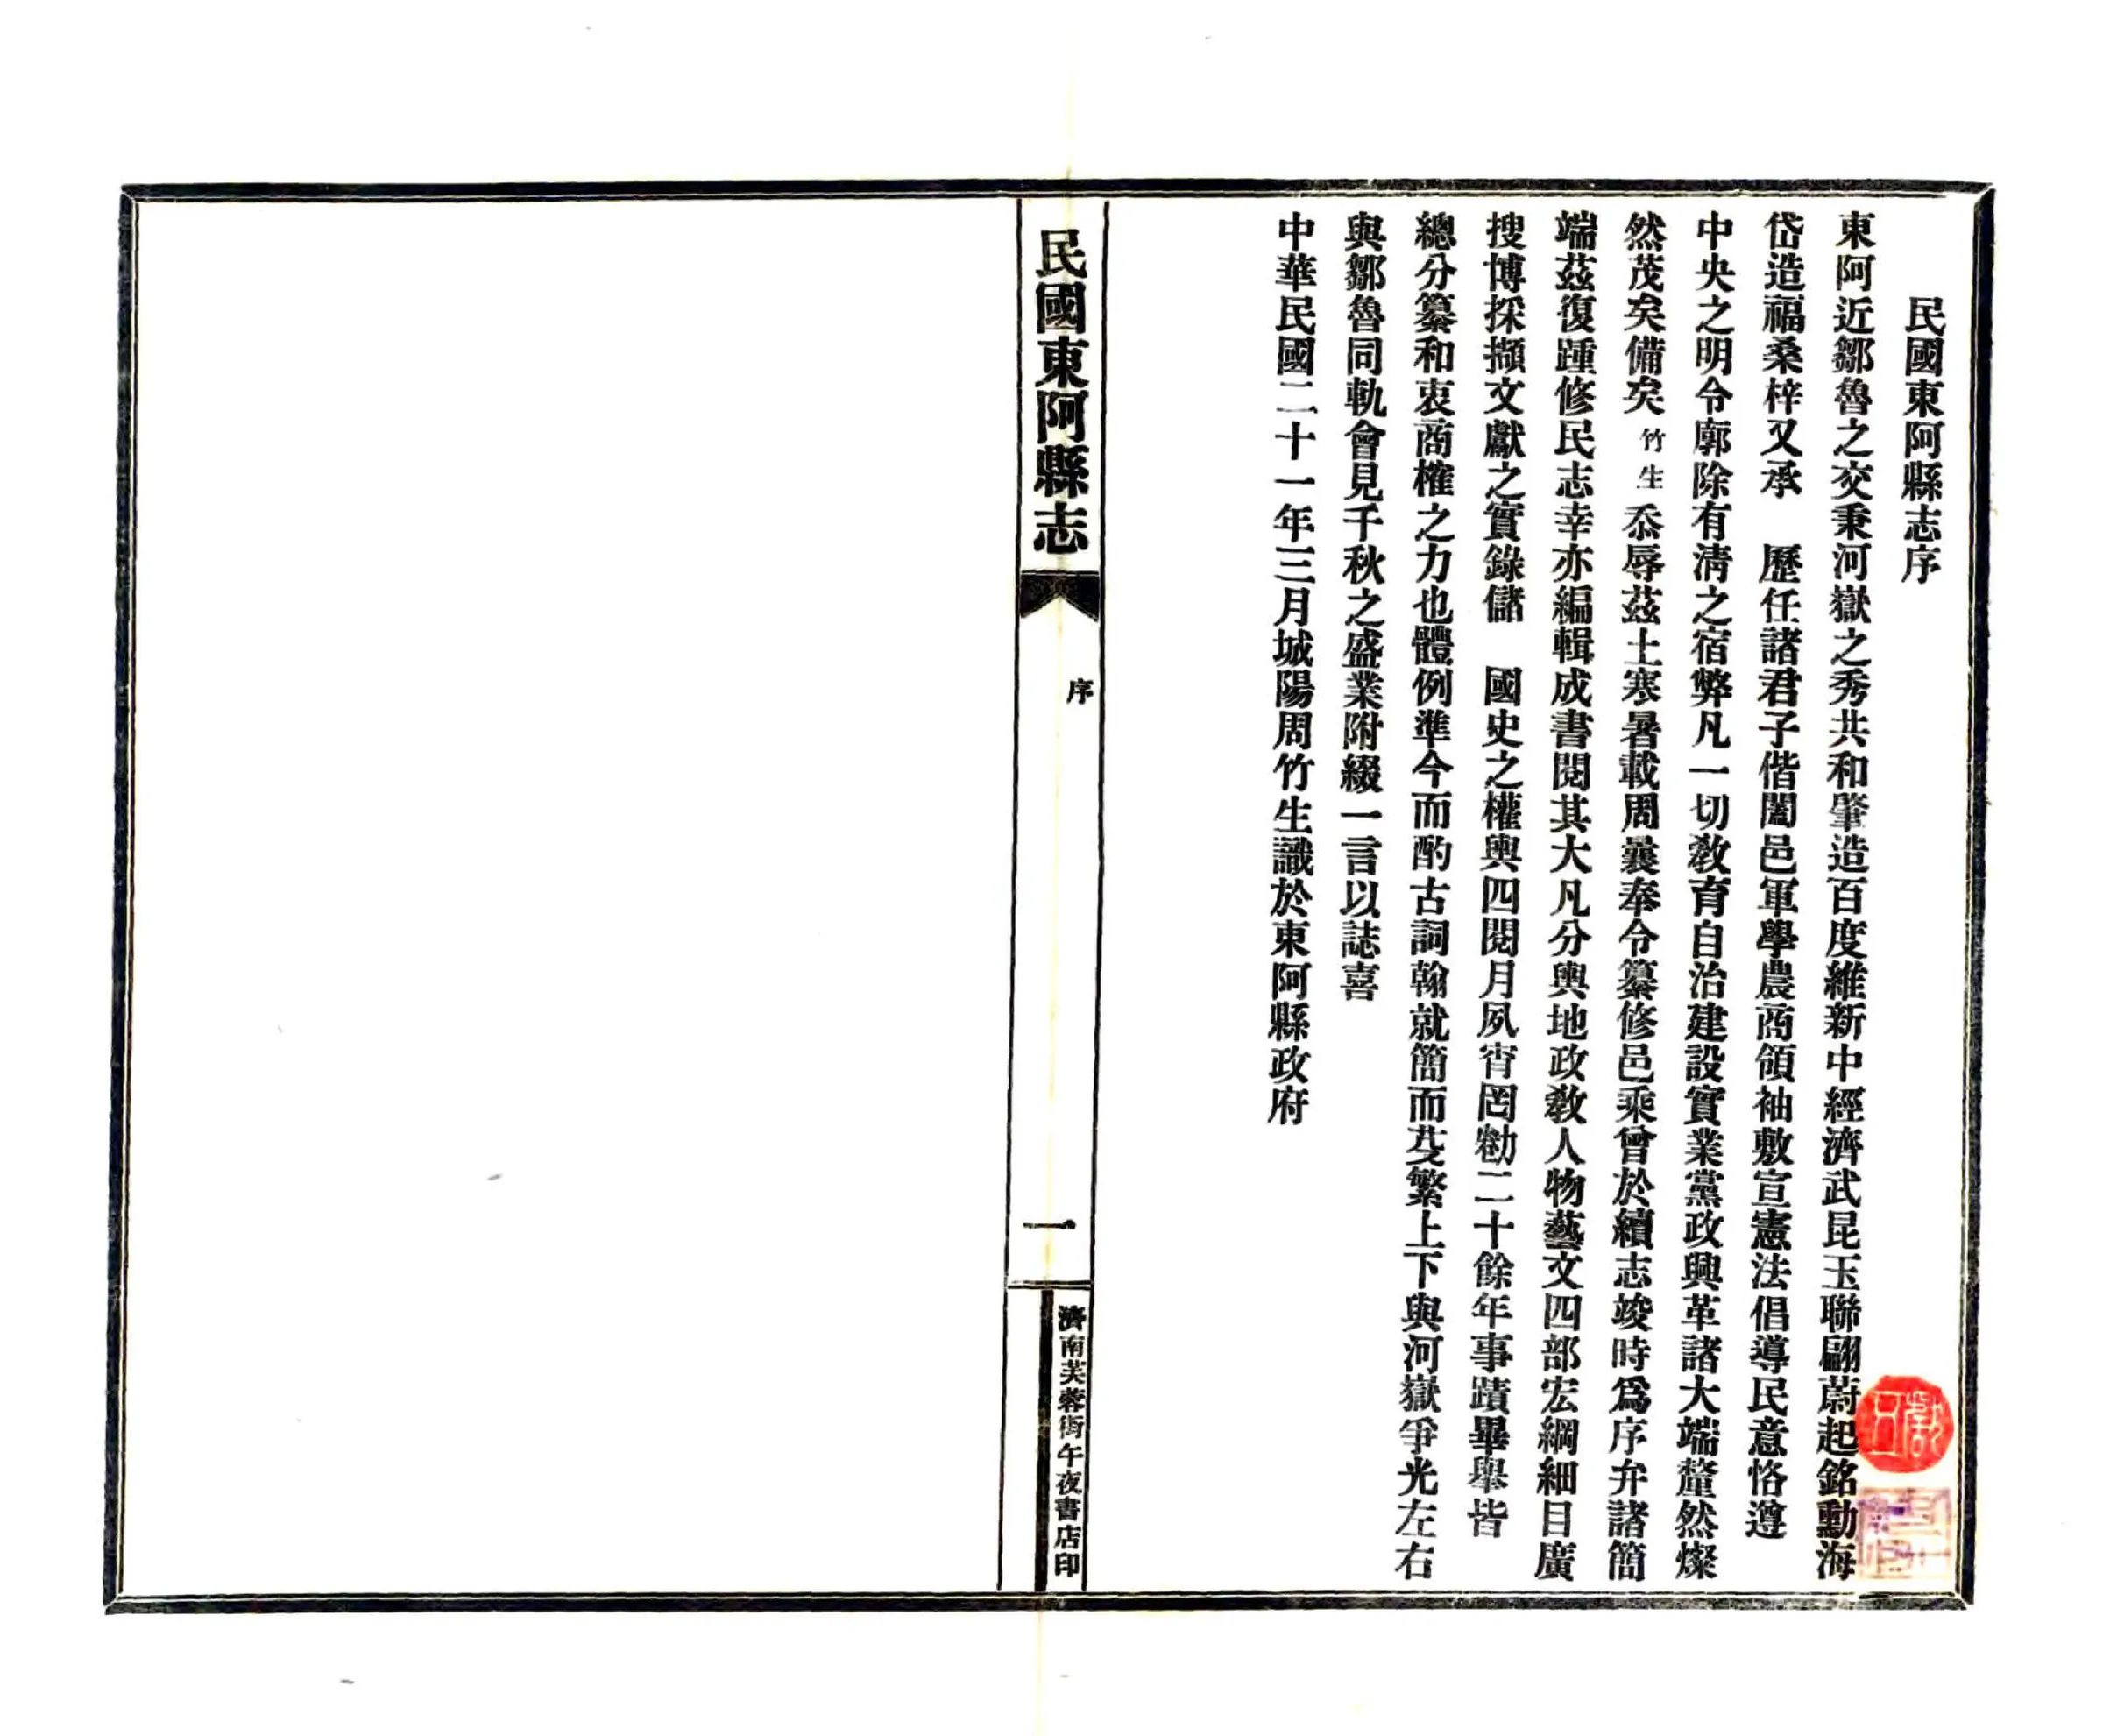 民國東阿縣志序
東阿近鄒魯之交秉河嶽之秀共和肇造百度維新中經濟武昆玉聯翩蔚起銘勳海
岱造福桑梓又承　歷任諸君子偕闔邑軍學農商領袖敷宣憲法倡導民意恪遵
中央之明令廓除有清之宿弊凡一切敎育自治建設實業黨政興革諸大端釐然燦
然茂矣備矣竹生忝辱茲土寒暑載周曩奉令纂修邑乘曾於續志竣時爲序弁諸簡
端茲復踵修民志幸亦編輯成書閱其大凡分輿地政敎人物藝文四部宏綱細目廣
搜博採擷文獻之實錄儲　國史之權輿四閱月夙宵罔勌二十餘年事蹟畢舉皆
總分纂和衷商榷之力也體例準今而酌古詞翰就簡而芟繁上下與河嶽爭光左右
與鄒魯同軌會見千秋之盛業附綴一言以誌喜
中華民國二十一年三月城陽周竹生識於東阿縣政府
民國東阿縣志
序
一
濟南芙蓉街午夜書店印